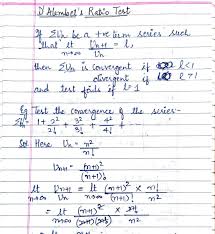 D'Alembert's Ratio Test
If ΣUn be a +ve term series such
that lt Un+1 = l,
n→∞ Un
then ΣUn is convergent if l<1
divergent if l>1
and test fails if l=1
Eg Test the convergence of the series-
ΣUn = 1 + 2²/2! + 3²/3! + 4²/4! +
Sol. Here Un = n²/n!
Un+1 = (n+1)²/(n+1)!
lt n→∞ Un+1/Un = lt n→∞ (n+1)²/(n+1)! × n!/n²
= lt n→∞ (n+1)² × n!/n²